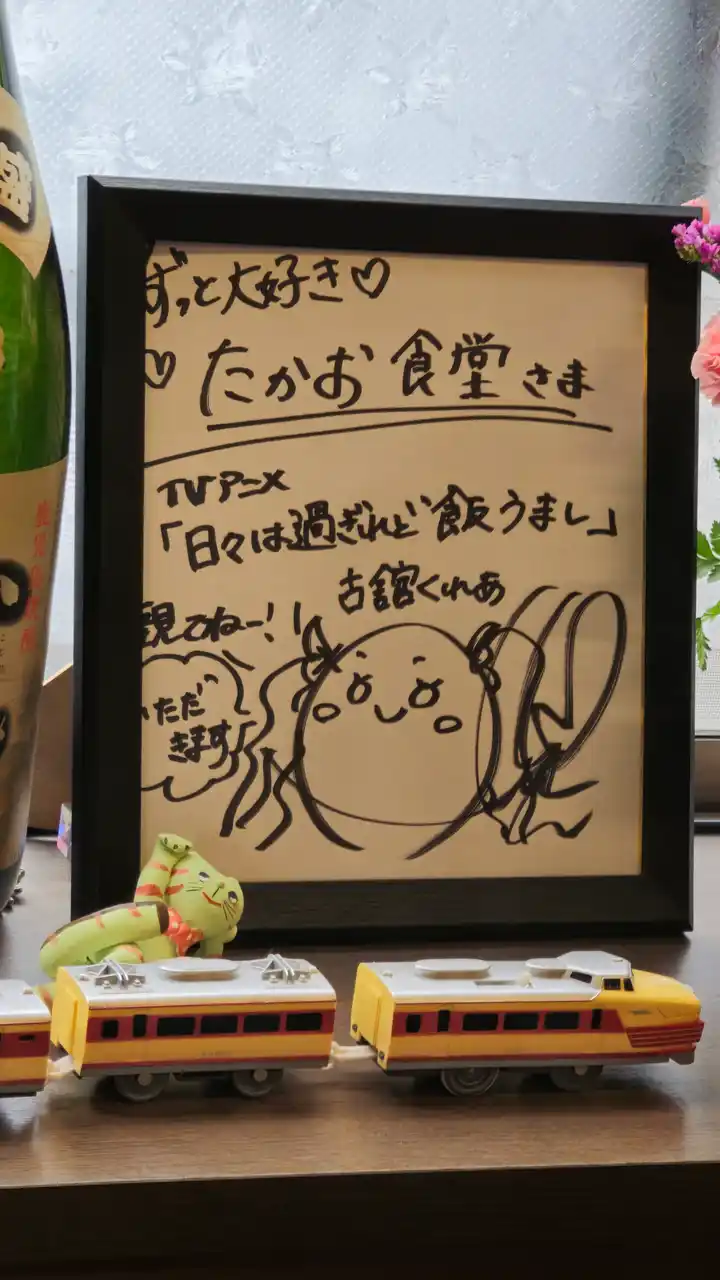 ずっと大好き♡
♡ たかお食堂さま
TVアニメ
「日々は過ぎれど飯うまし」
古舘くれあ
観てねー!!
いただ
きます
盛